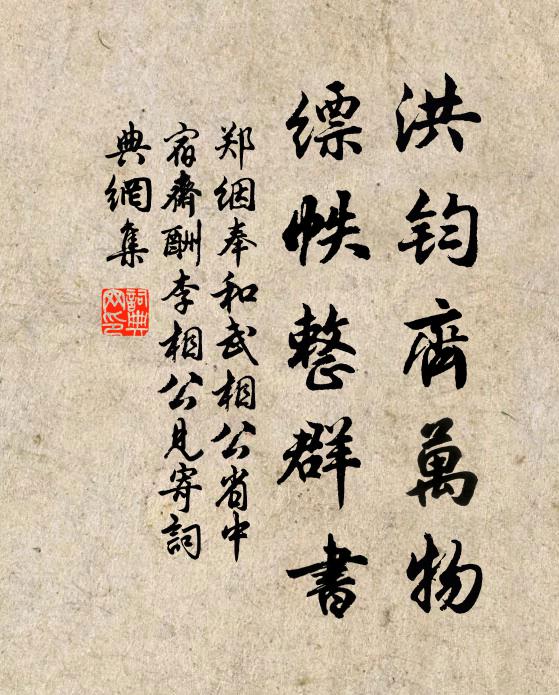 洪钧齊萬物
缥帙整群書
郑絪奉和武相公省中
宿齋酬李相公見寄詞
典網集
詞典網印